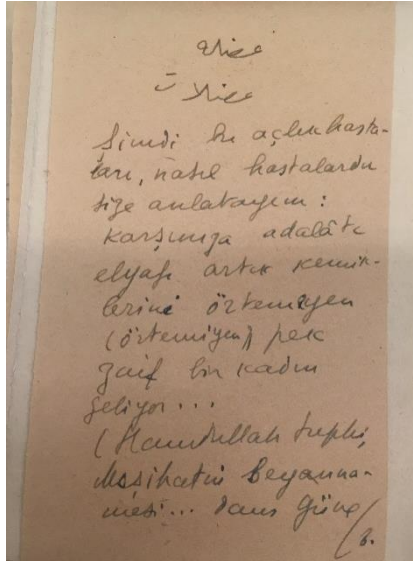 Şimdi bu açlık hasta-
ları, nasıl hastalardır
size anlatayım:
Karşımıza adalâtı
elyafı artık kemik-
lerini örtemiyen
(örtemiyen) pek
zaif bir kadın
geliyor...
(Hamdullah Suphi,
Meşihatin Beyanna-
mesi...